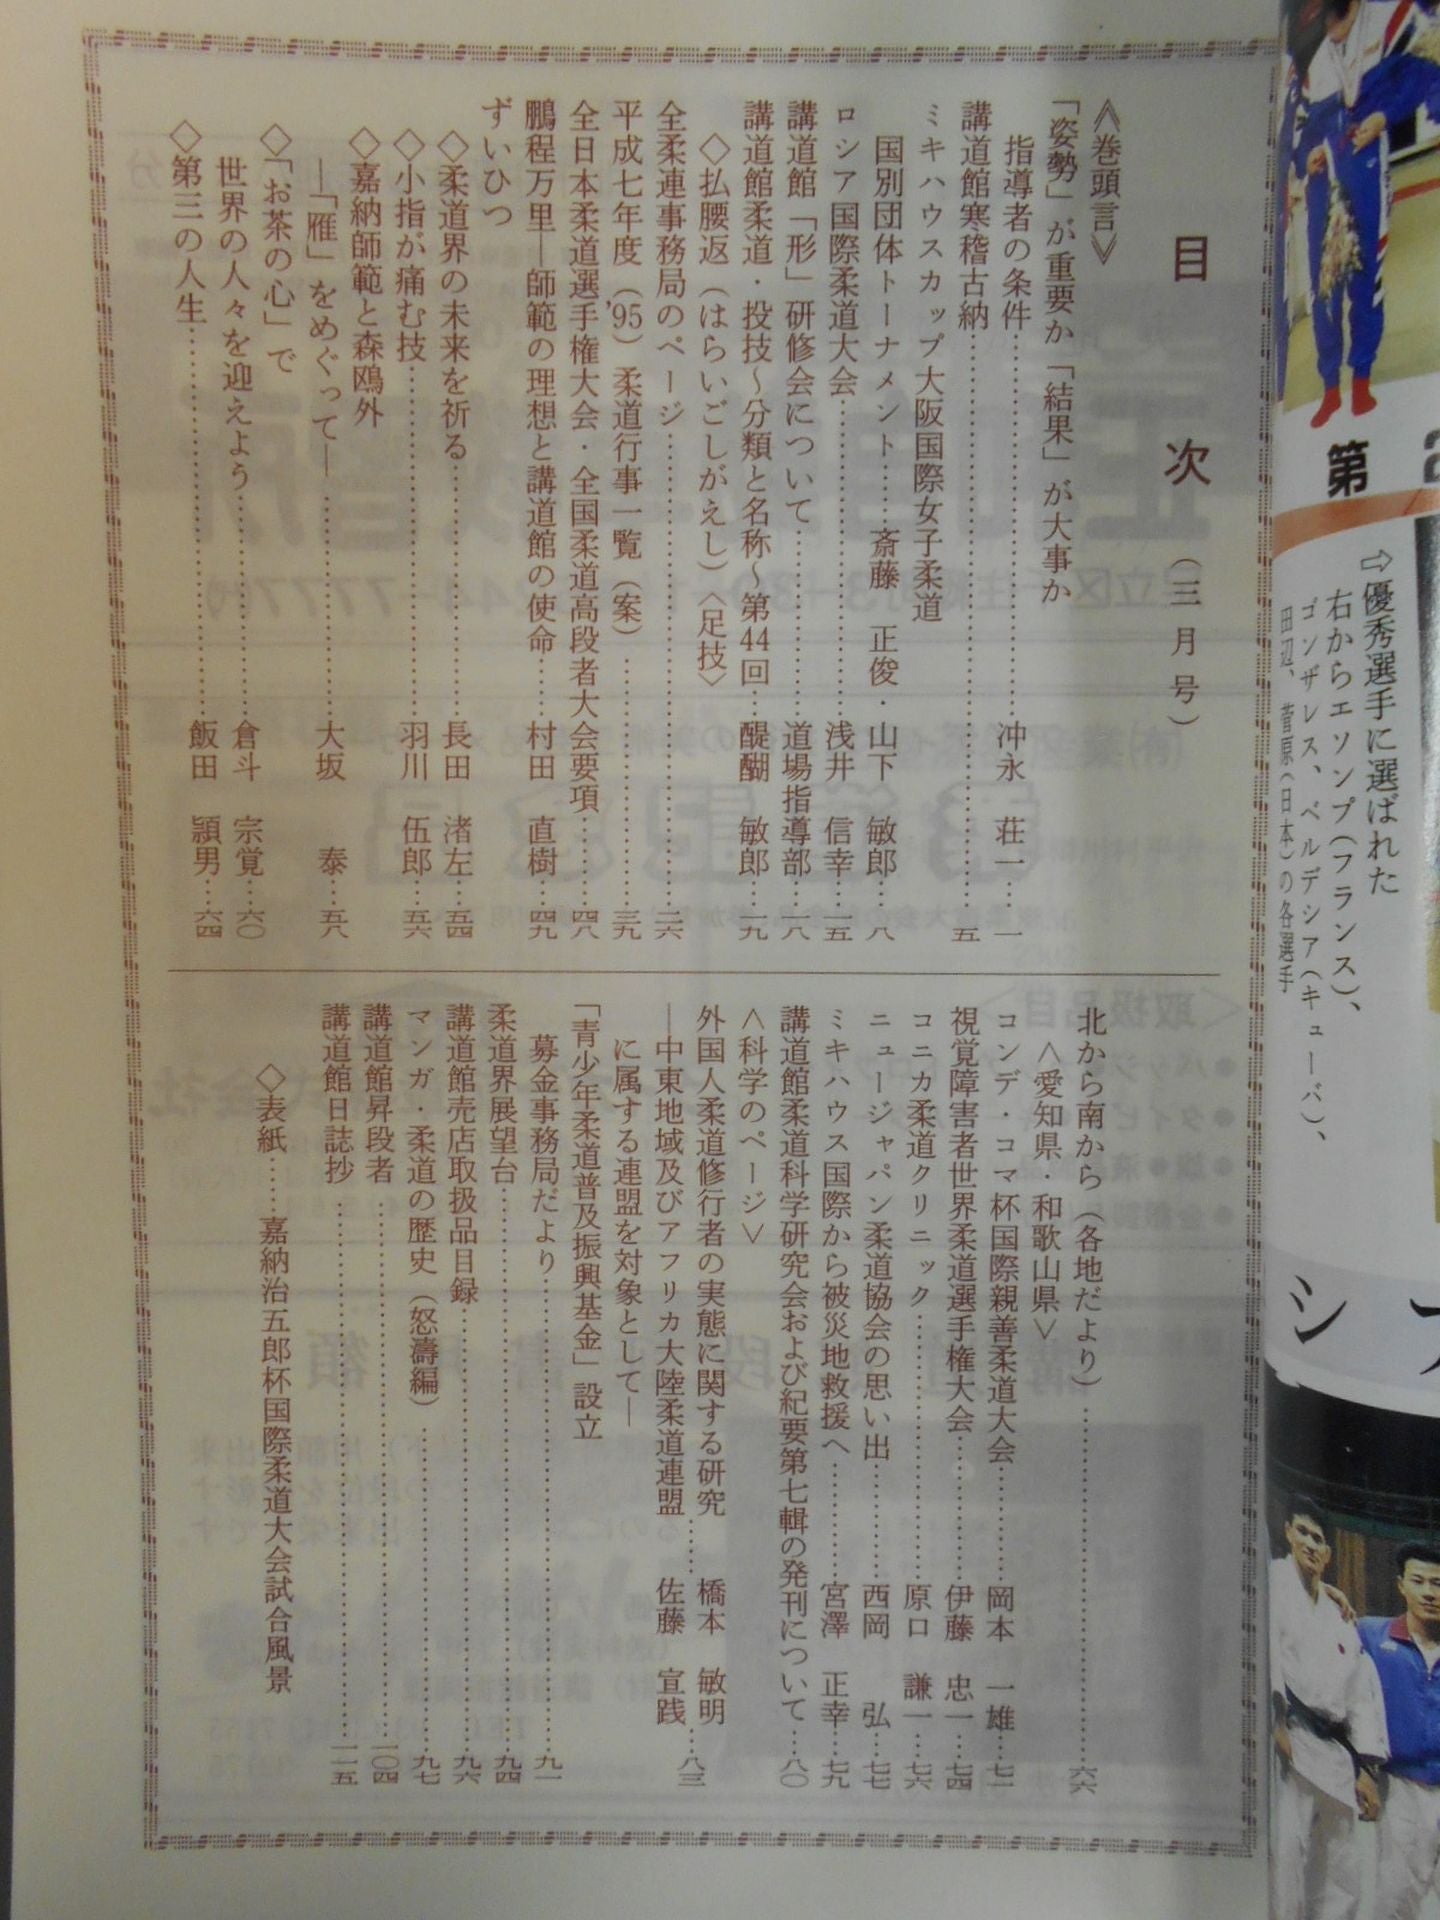 目次（三月号）
《巻頭言》
「姿勢」が重要か「結果」が大事か
指導者の条件……沖永 荘一…一
講道館寒稽古納……五
ミキハウスカップ大阪国際女子柔道
国別団体トーナメント……斎藤 正俊・山下 敏郎…八
ロシア国際柔道大会……浅井 信幸…一五
講道館「形」研修会について……道場指導部…一八
講道館柔道・投技～分類と名称～第44回…醍醐 敏郎…一九
◇払腰返（はらいごしがえし）〈足技〉
全柔連事務局のページ……二六
平成七年度（'95）柔道行事一覧（案）……三九
全日本柔道選手権大会・全国柔道高段者大会要項……四八
鵬程万里―師範の理想と講道館の使命……村田 直樹…四九
ずいひつ
◇柔道界の未来を祈る……長田 渚左…五四
◇小指が痛む技……羽川 伍郎…五六
◇嘉納師範と森鴎外
―「雁」をめぐって―……大坂 泰…五八
◇「お茶の心」で
世界の人々を迎えよう……倉斗 宗覚…六〇
◇第三の人生……飯田 頴男…六四
北から南から（各地だより）……六六
＜愛知県・和歌山県＞
コンデ・コマ杯国際親善柔道大会……岡本 一雄…七一
視覚障害者世界柔道選手権大会……伊藤 忠一…七四
コニカ柔道クリニック……原口 謙一…七六
ニュージャパン柔道協会の思い出……西岡 弘…七七
ミキハウス国際から被災地救援へ……宮澤 正幸…七九
講道館柔道科学研究会および紀要第七輯の発刊について…八〇
＜科学のページ＞
外国人柔道修行者の実態に関する研究
―中東地域及びアフリカ大陸柔道連盟
に属する連盟を対象として―……橋本 敏明
佐藤 宣践…八三
「青少年柔道普及振興基金」設立
募金事務局だより……九一
柔道界展望台……九四
講道館売店取扱品目録……九六
マンガ・柔道の歴史（怒濤編）……九七
講道館昇段者……一〇四
講道館日誌抄……一一五
◇表紙……嘉納治五郎杯国際柔道大会試合風景
第2
⇨優秀選手に選ばれた
右からエソンプ（フランス）、
ゴンザレス、ベルデシア（キューバ）、
田辺、菅原（日本）の各選手